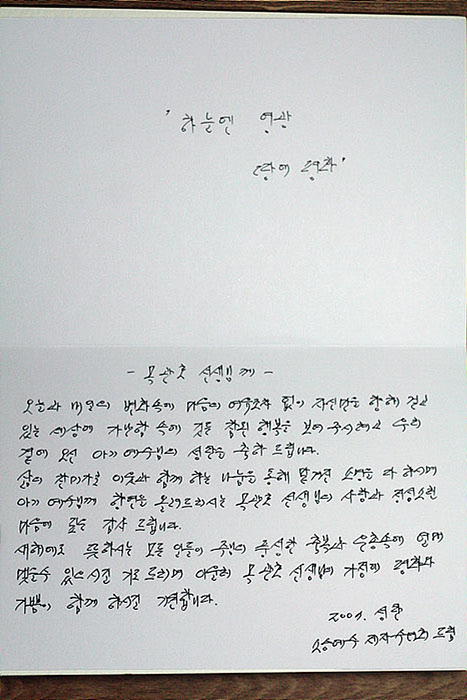 "하늘엔 영광
땅에 평화"
- 목관호 선생님께 -
오늘과 내일의 변화속에 마음의 여유조차 없이 자신만을 향해 걷고
있는 세상에 가난함 속에 깃든 참된 행복을 보여주시려고 우리
곁에 오신 아기 예수님의 성탄을 축하 드립니다.
삶의 잔미가로 이웃과 함께 하는 나눔을 통해 맡겨진 소명을 다 하시며
아기 예수님께 찬연을 올려드리시는 목관호 선생님의 사랑과 정성스런
마음에 깊은 감사 드립니다.
새해에도 뜻하시는 모든 일들이 주님의 풍성한 축복과 은총속에 열매
맺을수 있으시길 기도드리며 아울러 목관호 선생님의 가정에 평화와
기쁨이 함께 하시길 기원합니다.
2009. 성탄
소승예수 제자수녀회 드림